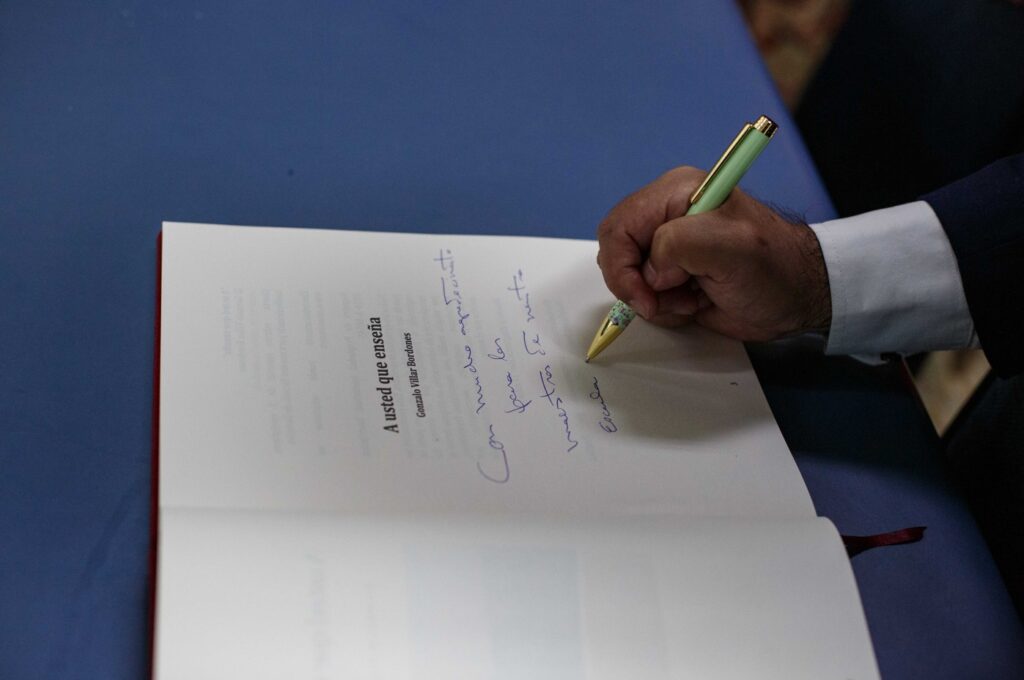 A usted que enseña
Gonzalo Villar Bordones
Con mucho
para los
maestros de
Escuela